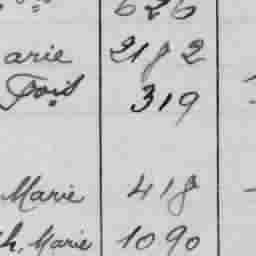 626
arie 2182
Fois 319
Marie 418
h, Marie 1090